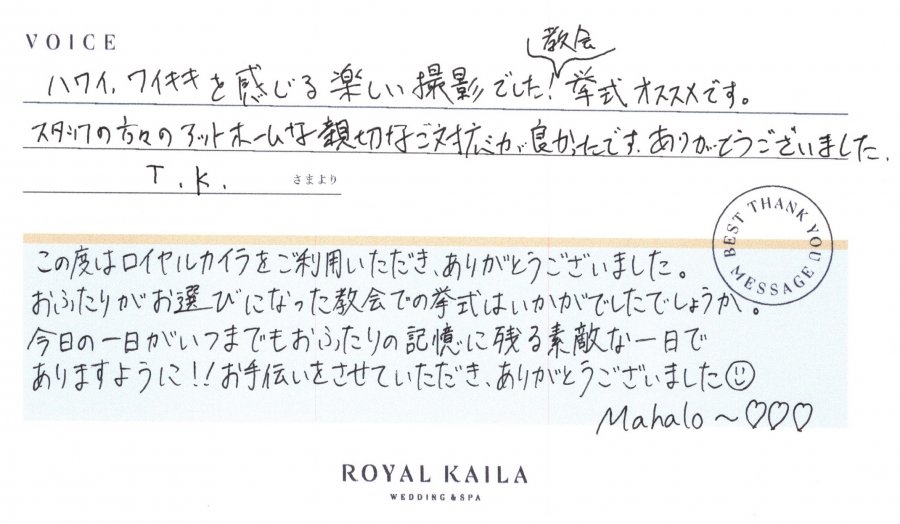 VOICE
教会
ハワイ、ワイキキを感じる楽しい撮影でした!挙式オススメです。
スタッフの方々のアットホームな親切なご対応が良かったです。ありがとうございました。
T.K. さまより
BEST THANK YOU MESSAGE
この度はロイヤルカイラをご利用いただき、ありがとうございました。
おふたりがお選びになった教会での挙式はいかがでしたでしょうか。
今日の一日がいつまでもおふたりの記憶に残る素敵な一日で
ありますように!!お手伝いをさせていただき、ありがとうございました☺
Mahalo～♡♡♡
ROYAL KAILA
WEDDING & SPA